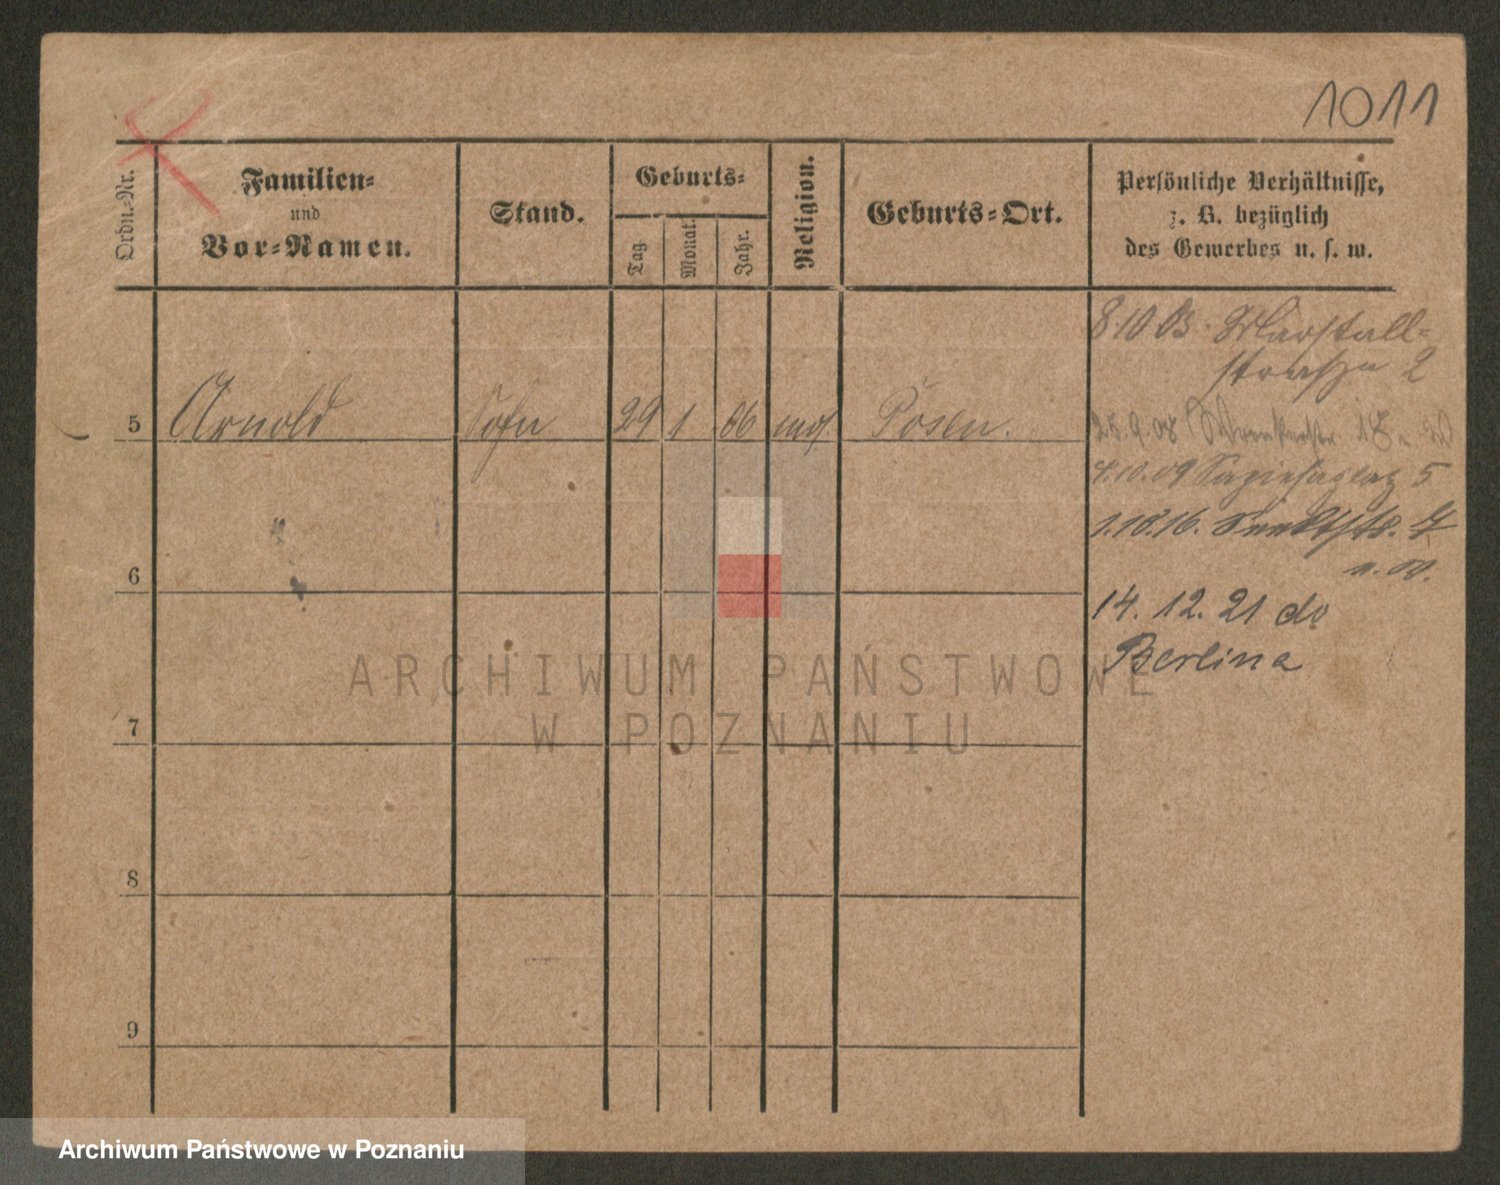 1011
Ordn.-Nr.
Familien-
und
Vor-Namen.
Stand.
Geburts-
Tag.
Monat.
Jahr.
Religion.
Geburts-Ort.
Persönliche Verhältnisse,
z. B. bezüglich
des Gewerbes u. s. w.
8.10.03. Marstall-
straße 2
5 Arnold Sohn 29 1 06 mos. Posen.
25.9.08
4.10.09 Sapiehaplatz 5
1.10.16.
14. 12. 21 do
Berlina
6
7
8
9
ARCHIWUM PAŃSTWOWE
W POZNANIU
Archiwum Państwowe w Poznaniu